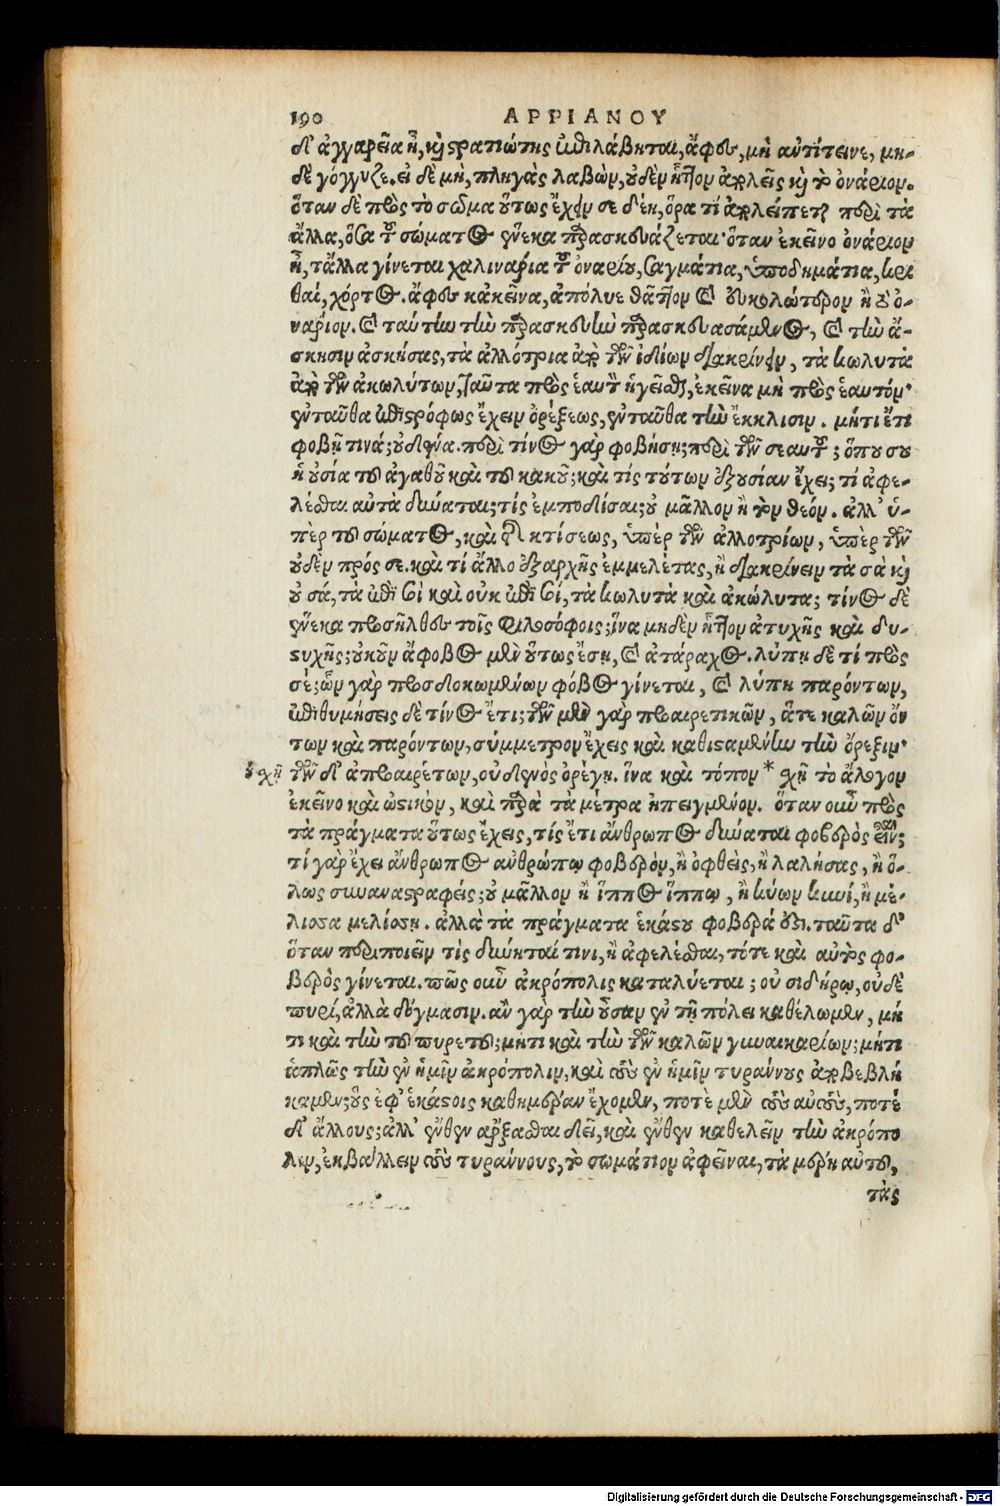 190 ΑΡΡΙΑΝΟΥ
δ' ἀγγαρεία ᾖ, καὶ στρατιώτης ἐπιλάβηται, ἄφες, μὴ ἀντίτεινε, μη-
δὲ γόγγυζε. εἰ δὲ μὴ, πληγὰς λαβὼν, οὐδὲν ἧττον ἀπολεῖς καὶ τὸ ὀνάριον.
ὅταν δὲ πρὸς τὸ σῶμα οὕτως ἔχειν σε δέῃ, ὅρα τί ἀπολείπεται περὶ τὰ
ἄλλα, ὅσα τοῦ σώματος ἕνεκα παρασκευάζεται· ὅταν ἐκεῖνο ὀνάριον
ᾖ, τἄλλα γίνεται χαλινάρια τοῦ ὀναρίου, σαγμάτια, ὑποδημάτια, κρι
θαί, χόρτος. ἄφες κἀκεῖνα, ἀπόλυε θᾶττον καὶ εὐκολώτερον ἢ τὸ ὀ-
νάριον. καὶ ταύτην τὴν παρασκευὴν παρασκευασάμενος, καὶ τὴν ἄ-
σκησιν ἀσκήσας, τὰ ἀλλότρια ἀπὸ τῶν ἰδίων διακρίνειν, τὰ κωλυτὰ
ἀπὸ τῶν ἀκωλύτων, ταῦτα πρὸς ἑαυτὸν ἡγεῖσθαι, ἐκεῖνα μὴ πρὸς ἑαυτόν·
ἐνταῦθα ἐπιστρόφως ἔχειν ὀρέξεως, ἐνταῦθα τὴν ἔκκλισιν. μήτι ἔτι
φοβῇ τινά; οὐδένα. περὶ τίνος γὰρ φοβήσῃ; περὶ τῶν σεαυτοῦ; ὅπου σου
ἡ οὐσία τοῦ ἀγαθοῦ καὶ τοῦ κακοῦ; καὶ τίς τούτων ἐξουσίαν ἔχει; τί ἀφε-
λέσθαι αὐτὰ δύναται; τίς ἐμποδίσαι; οὐ μᾶλλον ἢ τὸν θεόν. ἀλλ' ὑ-
πὲρ τοῦ σώματος, καὶ τῆς κτίσεως, ὑπὲρ τῶν ἀλλοτρίων, ὑπὲρ τῶν
οὐδὲν πρός σε. καὶ τί ἄλλο ἐξαρχῆς ἐμμελέτας, ἢ διακρίνειν τὰ σὰ καὶ
οὐ σά, τὰ ἐπὶ σοὶ καὶ οὐκ ἐπὶ σοί, τὰ κωλυτὰ καὶ ἀκώλυτα; τίνος δὲ
ἕνεκα προσῆλθες τοῖς φιλοσόφοις; ἵνα μηδὲν ἧττον ἀτυχῇς καὶ δυ-
στυχῇς; οὐκοῦν ἄφοβος μὲν οὕτως ἔσῃ, καὶ ἀτάραχος. λύπη δὲ τί πρὸς
σέ; ὧν γὰρ προσδοκωμένων φόβος γίνεται, καὶ λύπη παρόντων,
ἐπιθυμήσεις δὲ τίνος ἔτι; τῶν μὲν γὰρ προαιρετικῶν, ἅτε καλῶν ὄν
των καὶ παρόντων, σύμμετρον ἔχεις καὶ καθισαμένην τὴν ὄρεξιν·
τῶν δ' ἀπροαιρέτων, οὐδενὸς ὀρέγῃ. ἵνα καὶ τόπον * σχῇ τὸ ἄλογον
ἐκεῖνο καὶ ὠστικὸν, καὶ παρὰ τὰ μέτρα ἠπειγμένον. ὅταν οὖν πρὸς
τὰ πράγματα οὕτως ἔχεις, τίς ἔτι ἄνθρωπος δύναται φοβερὸς εἶναι;
τί γὰρ ἔχει ἄνθρωπος ἀνθρώπῳ φοβερὸν, ἢ ὀφθεὶς, ἢ λαλήσας, ἢ ὅ-
λως συναναστραφείς; οὐ μᾶλλον ἢ ἵππος ἵππῳ, ἢ κύων κυνί, ἢ μέ-
λισσα μελίσσῃ. ἀλλὰ τὰ πράγματα ἑκάστου φοβερά ἐστι. ταῦτα δ'
ὅταν περιποιεῖν τίς δύνηταί τινι, ἢ ἀφελέσθαι, τότε καὶ αὐτὸς φο-
βερὸς γίνεται. πῶς οὖν ἀκρόπολις καταλύεται; οὐ σιδήρῳ, οὐδὲ
πυρί, ἀλλὰ δόγμασιν. ἂν γὰρ τὴν οὖσαν ἐν τῇ πόλει καθέλωμεν, μή
τι καὶ τὴν τοῦ πυρετοῦ; μήτι καὶ τὴν τῶν καλῶν γυναικαρίων; μήτι
ἁπλῶς τὴν ἐν ἡμῖν ἀκρόπολιν, καὶ τοὺς ἐν ἡμῖν τυράννους ἀποβεβλή
καμεν; οὓς ἐφ' ἑκάστοις καθημέραν ἔχομεν, ποτὲ μὲν τοὺς αὐτοὺς, ποτὲ
δ' ἄλλους; ἀλλ' ἔνθεν ἄρξασθαι δεῖ, καὶ ἔνθεν καθελεῖν τὴν ἀκρόπο
λιν, ἐκβάλλειν τοὺς τυράννους, τὸ σωμάτιον ἀφεῖναι, τὰ μέρη αὐτοῦ,
τὰς
Digitalisierung gefördert durch die Deutsche Forschungsgemeinschaft - DFG